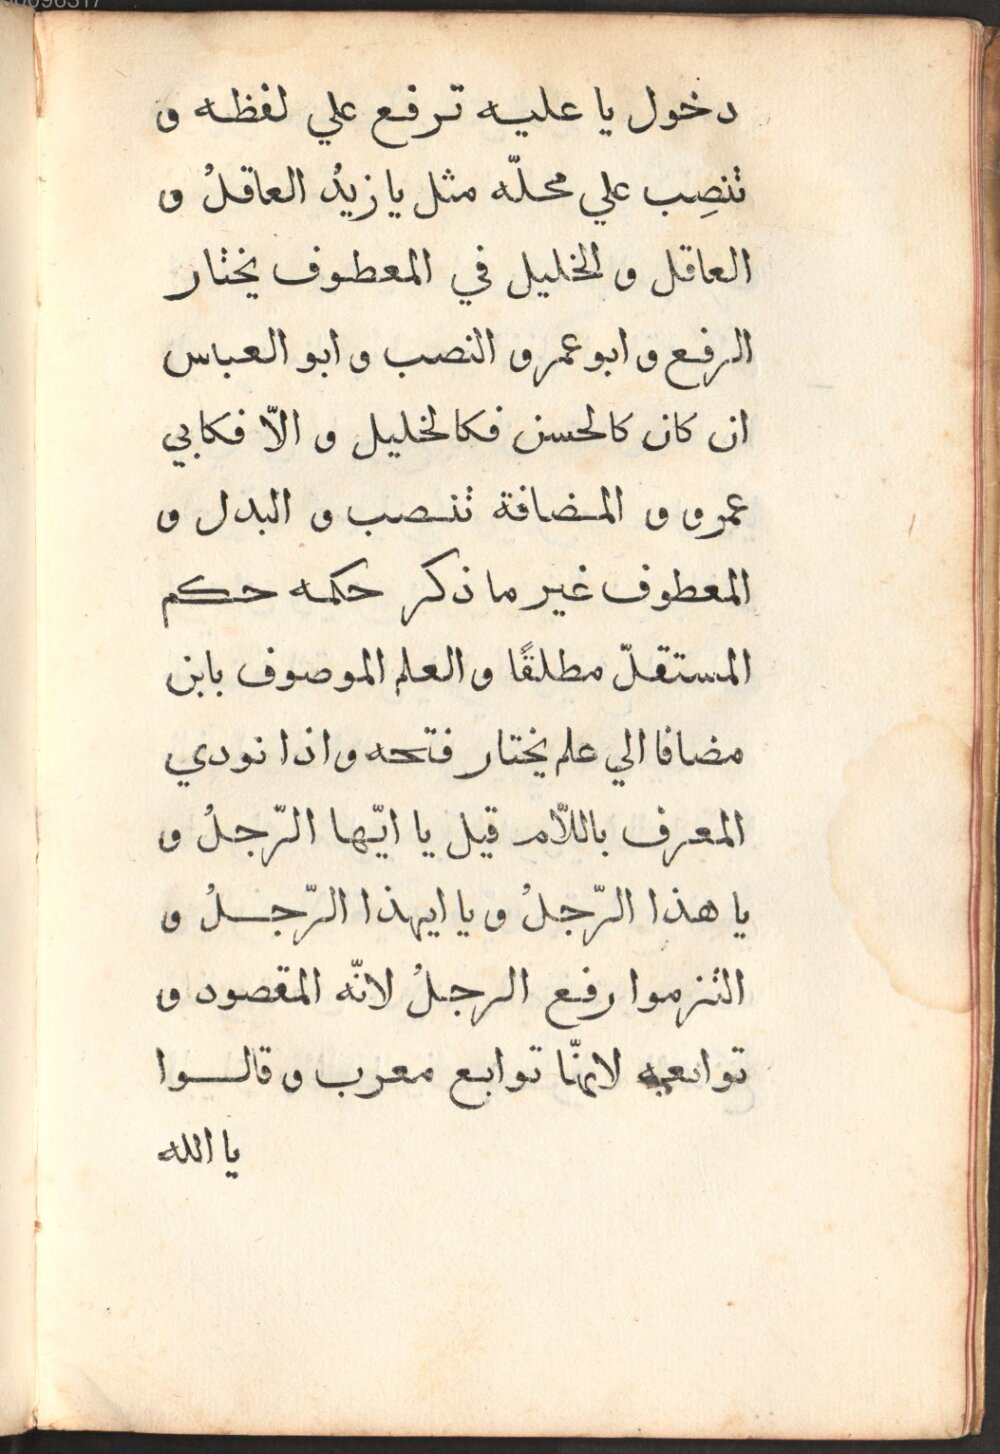 دخول يا عليه ترفع علي لفظه و
تنصِب علي محلّه مثل يا زيدُ العاقلُ و
العاقل و الخليل في المعطوف يختار
الرفع و ابو عمرو النصب و ابو العباس
ان كان كالحسن فكالخليل و الاّ فكابي
عمرو و المضافة تنصب و البدل و
المعطوف غير ما ذكر حكمه حكم
المستقلّ مطلقًا و العلم الموصوف بابن
مضافا الي علم يختار فتحه و اذا نودي
المعرف باللاّم قيل يا ايّها الرّجلُ و
يا هذا الرّجلُ و يا ايهذا الرّجلُ و
التزموا رفع الرجلُ لانّه المقصود و
توابعه لانهّا توابع معرب و قالوا
يا الله